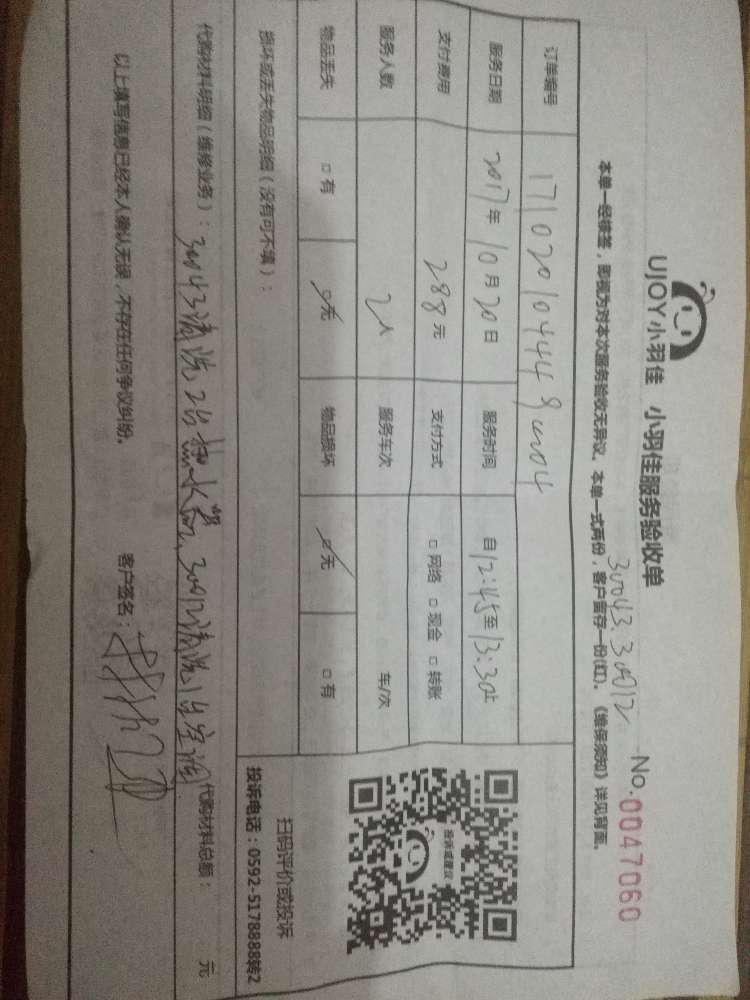 UJOY小羽佳 小羽佳服务验收单
30043.30012 No.0047060
本单一经接签，即视为对本次服务验收无异议。本单一式两份，客户留存一份(红)。《维保须知》详见背面。
订单编号 171020104448
服务日期 2017年10月20日 服务时间 自12:45至13:30止
支付费用 288元 支付方式 □网络 □现金 □转账
服务人数 2人 服务车次 车/次
物品丢失 □有 □无 物品损坏 □无 □有
损坏或丢失物品明细（没有可不填）：
投诉或建议
扫码评价或投诉
投诉电话：0592-5178888转2
代购材料明细（维修业务）：30043清洗2台热水器，30012清洗1台空调 代购材料总额： 元
以上填写信息已经本人确认无误，不存在任何争议纠纷。 客户签名：